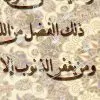 ذلك الفضل من الله
ومن يغفر الذنوب إلا